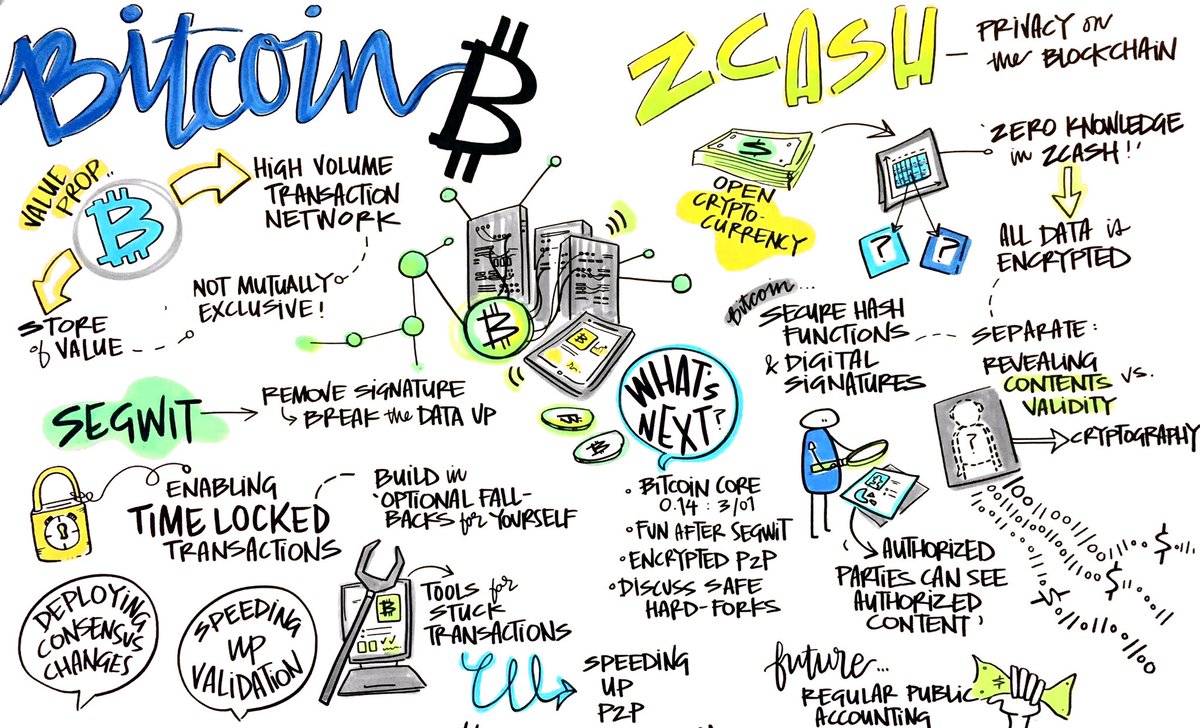 Bitcoin
VALUE
PROP..
HIGH VOLUME
TRANSACTION
NETWORK
NOT MUTUALLY
EXCLUSIVE!
STORE
of VALUE
SEGWIT
REMOVE SIGNATURE
BREAK the DATA UP
ENABLING
TIME LOCKED
TRANSACTIONS
BUILD in
'OPTIONAL FALL-
BACKS for YOURSELF
DEPLOYING
CONSENSUS
CHANGES
SPEEDING
UP
VALIDATION
TOOLS for
STUCK
TRANSACTIONS
WHAT'S
NEXT?
• BITCOIN CORE
0.14 : 3/01
• FUN AFTER SEGWIT
• ENCRYPTED P2P
• DISCUSS SAFE
HARD-FORKS
SPEEDING
UP
P2P
ZCASH
— PRIVACY on
the BLOCKCHAIN
$
OPEN
CRYPTO-
CURRENCY
'ZERO KNOWLEDGE
in ZCASH!'
? ?
ALL DATA is
ENCRYPTED
Bitcoin...
SECURE HASH
FUNCTIONS
& DIGITAL
SIGNATURES
SEPARATE:
REVEALING
CONTENTS vs.
VALIDITY
?
CRYPTOGRAPHY
AUTHORIZED
PARTIES CAN SEE
AUTHORIZED
CONTENT'
future...
REGULAR PUBLIC
ACCOUNTING